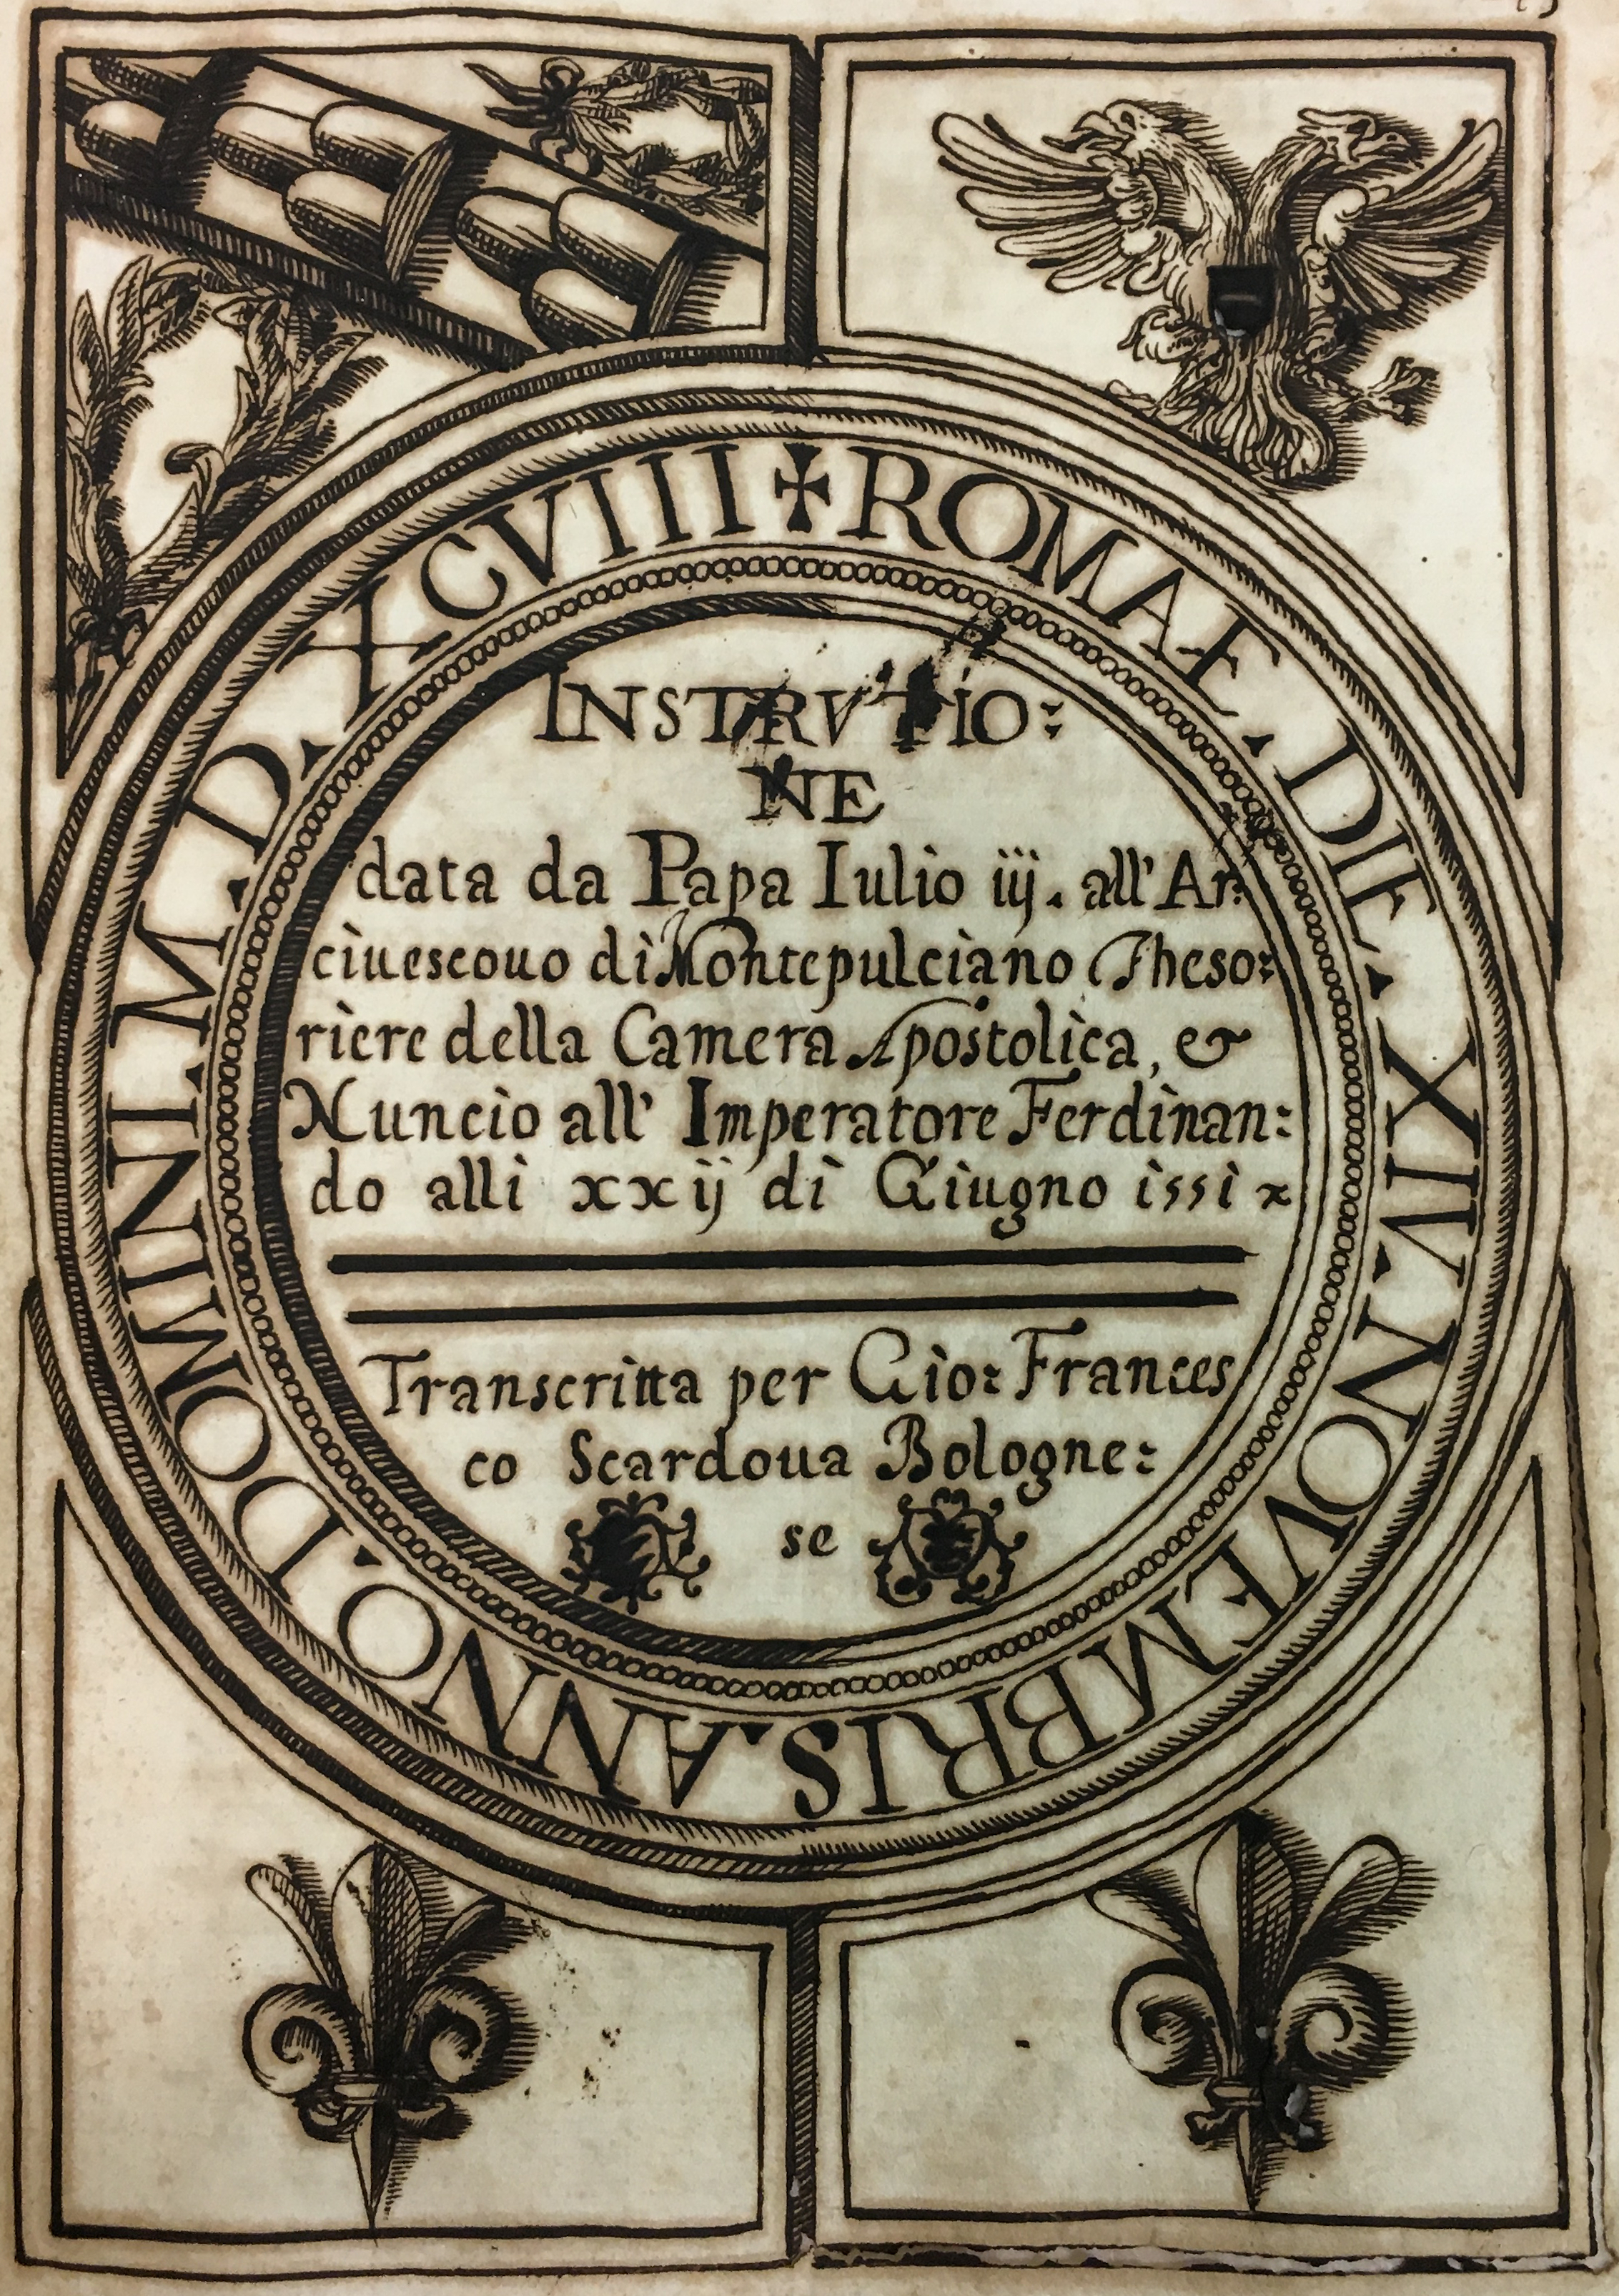 ✠ ROMAE . DIE . XIV . NOVEMBRIS . ANNO . DOMINI . M . D . XCVIII
INSTRVTIO:
NE
data da Papa Iulio iij. all' Ar:
ciuescouo di Montepulciano Theso:
riere della Camera Apostolica, &
Nuncio all' Imperatore Ferdinan:
do alli xxij di Giugno issi
Transcritta per Gio: Frances
co Scardoua Bologne:
se